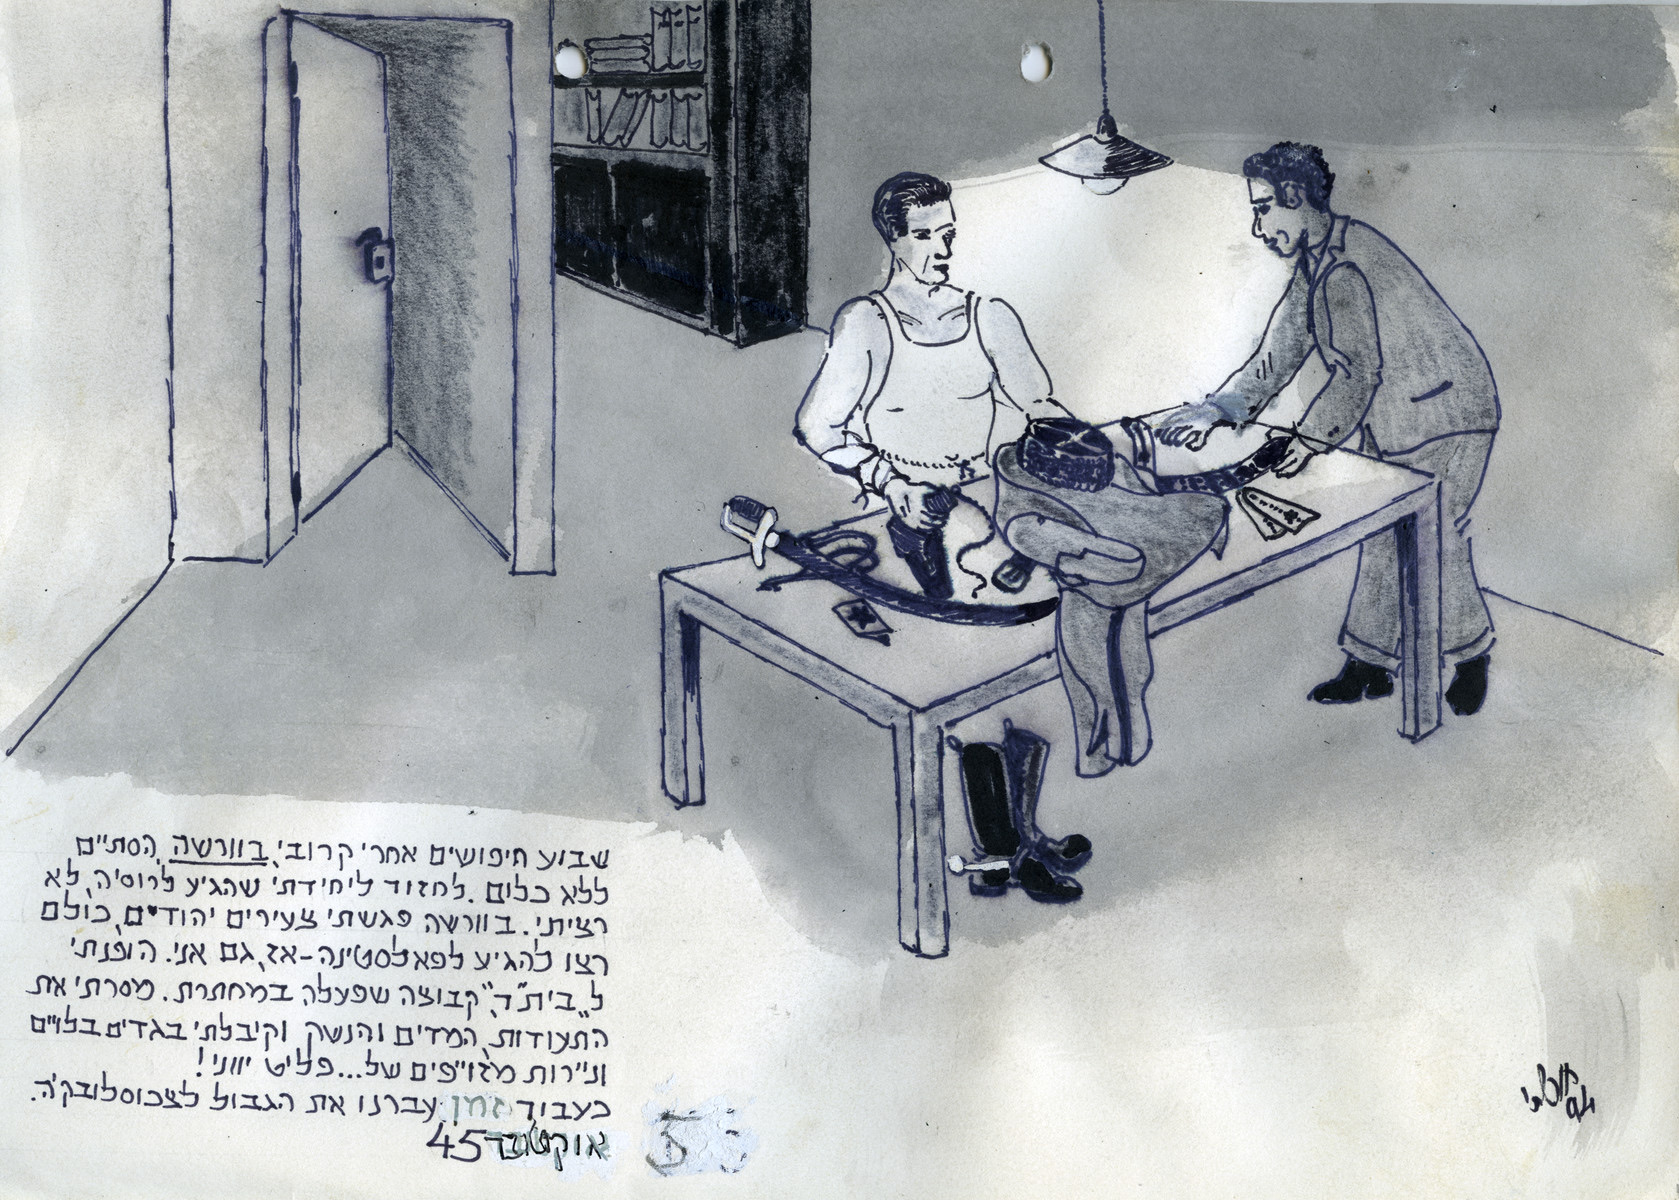 שבוע חיפושים אחרי קרובי, בוורשה, הסתיים
ללא כלום. לחזור ליחידתי שהגיע לרוסיה, לא
רציתי. בוורשה פגשתי צעירים יהודים, כולם
רצו להגיע לפאלסטינה-אז, גם אני. הופנתי
ל"בית"ד", קבוצה שפעלה במחתרת. מסרתי את
התעודות, המדים והנשק וקיבלתי בגדים בלויים
וניירות מזוייפים של...פליט יווני!
כעבור זמן, עברנו את הגבול לצכוסלובקיה.
אוקטובר 45
5